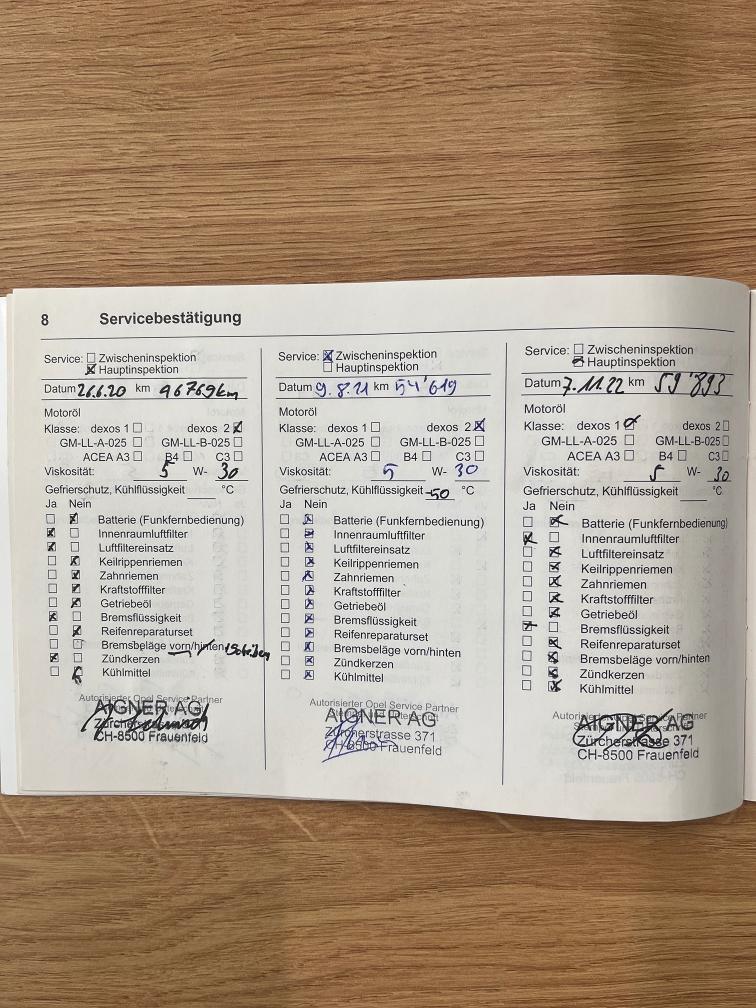 8 Servicebestätigung
Service: Zwischeninspektion
Hauptinspektion
Datum 26.6.20 km 46769km
Motoröl
Klasse: dexos 1 dexos 2
GM-LL-A-025 GM-LL-B-025
ACEA A3 B4 C3
Viskosität: 5 W- 30
Gefrierschutz, Kühlflüssigkeit °C
Ja Nein
Batterie (Funkfernbedienung)
Innenraumluftfilter
Luftfiltereinsatz
Keilrippenriemen
Zahnriemen
Kraftstofffilter
Getriebeöl
Bremsflüssigkeit
Reifenreparaturset
Bremsbeläge vorn/hinten
Zündkerzen
Kühlmittel
Autorisierter Opel Service Partner
AIGNER AG
CH-8500 Frauenfeld
Service: Zwischeninspektion
Hauptinspektion
Datum 9.8.21 km 54'619
Motoröl
Klasse: dexos 1 dexos 2
GM-LL-A-025 GM-LL-B-025
ACEA A3 B4 C3
Viskosität: 5 W- 30
Gefrierschutz, Kühlflüssigkeit -50 °C
Ja Nein
Batterie (Funkfernbedienung)
Innenraumluftfilter
Luftfiltereinsatz
Keilrippenriemen
Zahnriemen
Kraftstofffilter
Getriebeöl
Bremsflüssigkeit
Reifenreparaturset
Bremsbeläge vorn/hinten
Zündkerzen
Kühlmittel
Autorisierter Opel Service Partner
AIGNER AG
Zürcherstrasse 371
CH-8500 Frauenfeld
Service: Zwischeninspektion
Hauptinspektion
Datum 7.11.22 km 59'893
Motoröl
Klasse: dexos 1 dexos 2
GM-LL-A-025 GM-LL-B-025
ACEA A3 B4 C3
Viskosität: 5 W- 30
Gefrierschutz, Kühlflüssigkeit °C
Ja Nein
Batterie (Funkfernbedienung)
Innenraumluftfilter
Luftfiltereinsatz
Keilrippenriemen
Zahnriemen
Kraftstofffilter
Getriebeöl
Bremsflüssigkeit
Reifenreparaturset
Bremsbeläge vorn/hinten
Zündkerzen
Kühlmittel
Autorisierter Opel Service Partner
AIGNER AG
Zürcherstrasse 371
CH-8500 Frauenfeld